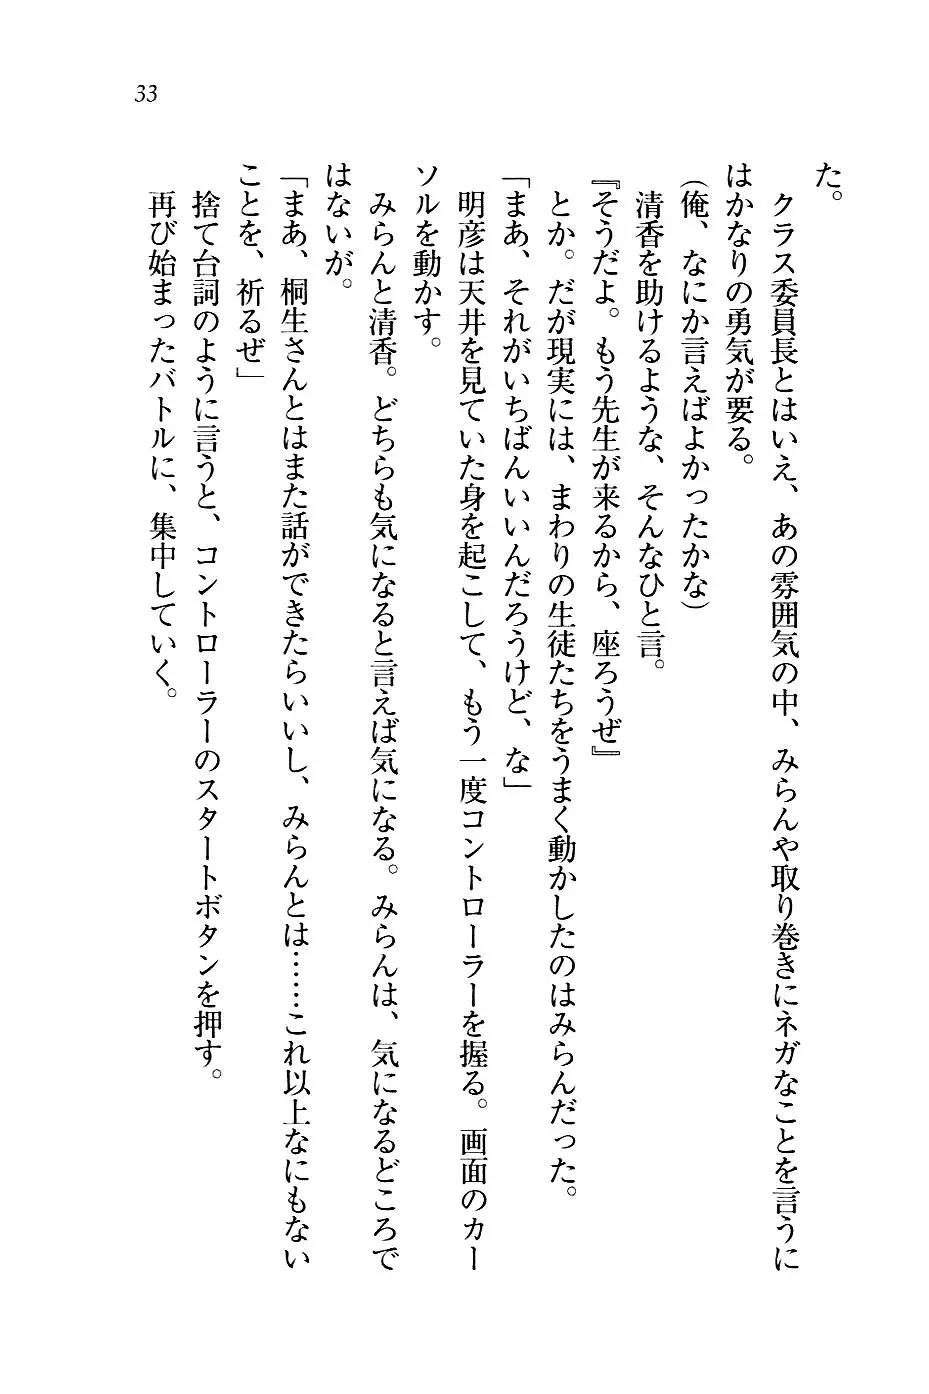 33
た。
　クラス委員長とはいえ、あの雰囲気の中、みらんや取り巻きにネガなことを言うに
はかなりの勇気が要る。
（俺、なにか言えばよかったかな）
　清香を助けるような、そんなひと言。
『そうだよ。もう先生が来るから、座ろうぜ』
　とか。だが現実には、まわりの生徒たちをうまく動かしたのはみらんだった。
「まあ、それがいちばんいいんだろうけど、な」
　明彦は天井を見ていた身を起こして、もう一度コントローラーを握る。画面のカー
ソルを動かす。
　みらんと清香。どちらも気になると言えば気になる。みらんは、気になるどころで
はないが。
「まあ、桐生さんとはまた話ができたらいいし、みらんとは……これ以上なにもない
ことを、祈るぜ」
　捨て台詞のように言うと、コントローラーのスタートボタンを押す。
　再び始まったバトルに、集中していく。